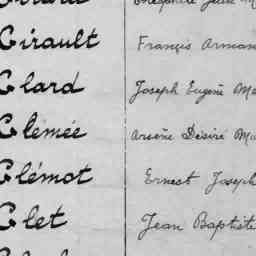 Girault François Arman
Glard Joseph Eugène Ma
Glémée Arsène Désiré Ma
Glémot Ernest Joseph
Glet Jean Baptiste